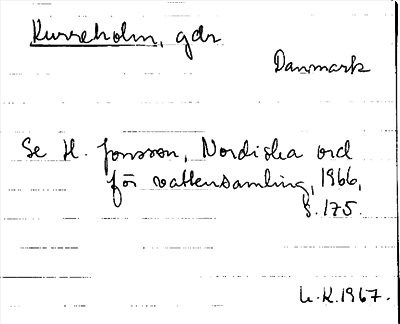 Kurreholm, gdr
Danmark
Se H. Jonsson, Nordiska ord
för vattensamling, 1966,
s. 175.
K.1967.